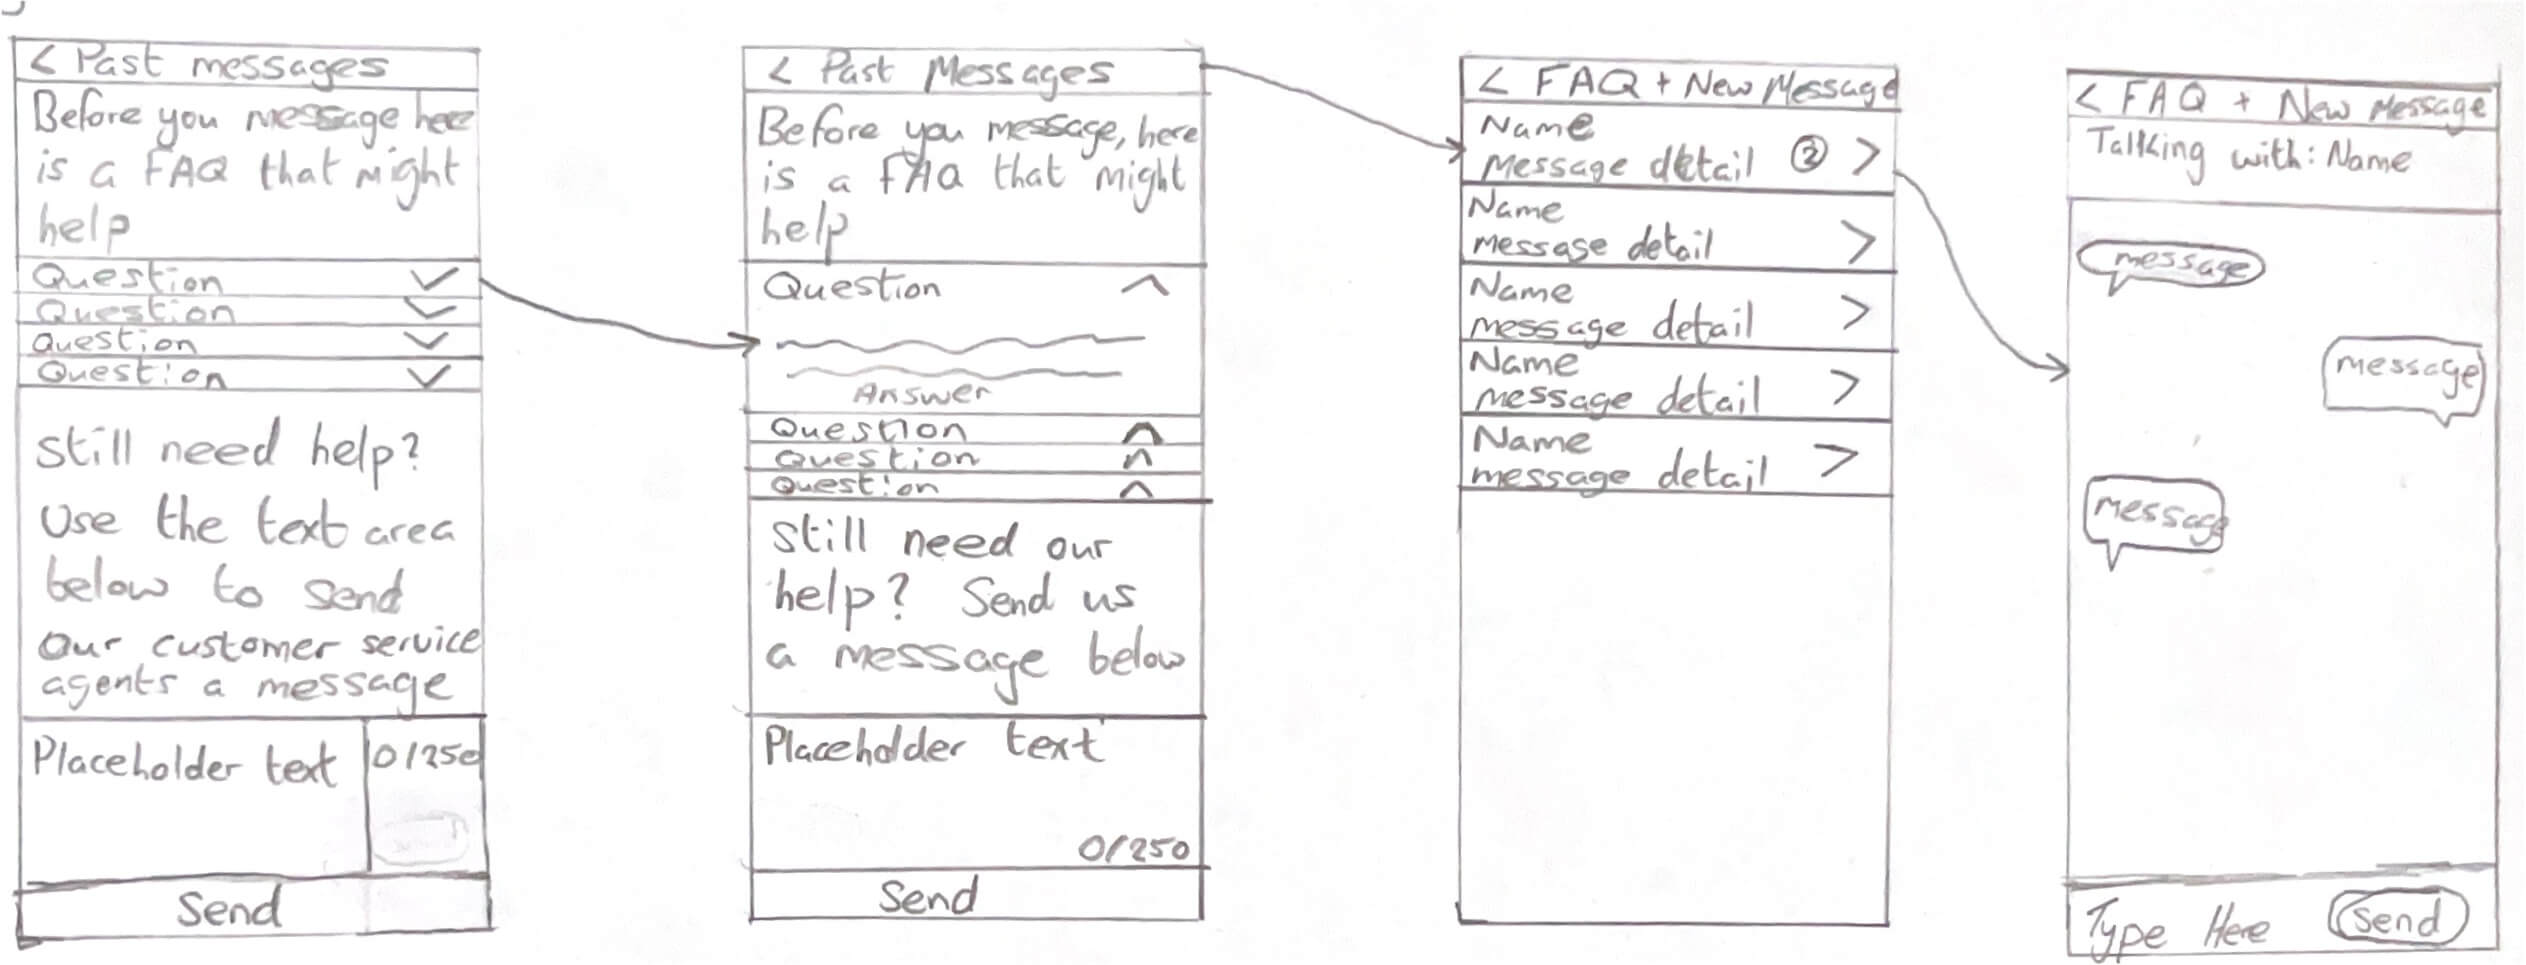 < Past messages
Before you message here
is a FAQ that might
help
Question
Question
Question
Question
Still need help?
Use the text area
below to send
our customer service
agents a message
Placeholder text 0/250
Send
< Past Messages
Before you message, here
is a FAQ that might
help
Question
Answer
Question
Question
Question
Still need our
help? Send us
a message below
Placeholder text
0/250
Send
< FAQ + New Message
Name
Message detail 2 >
Name
message detail >
Name
message detail >
Name
message detail >
Name
message detail >
< FAQ + New Message
Talking with: Name
message
message
message
Type Here Send